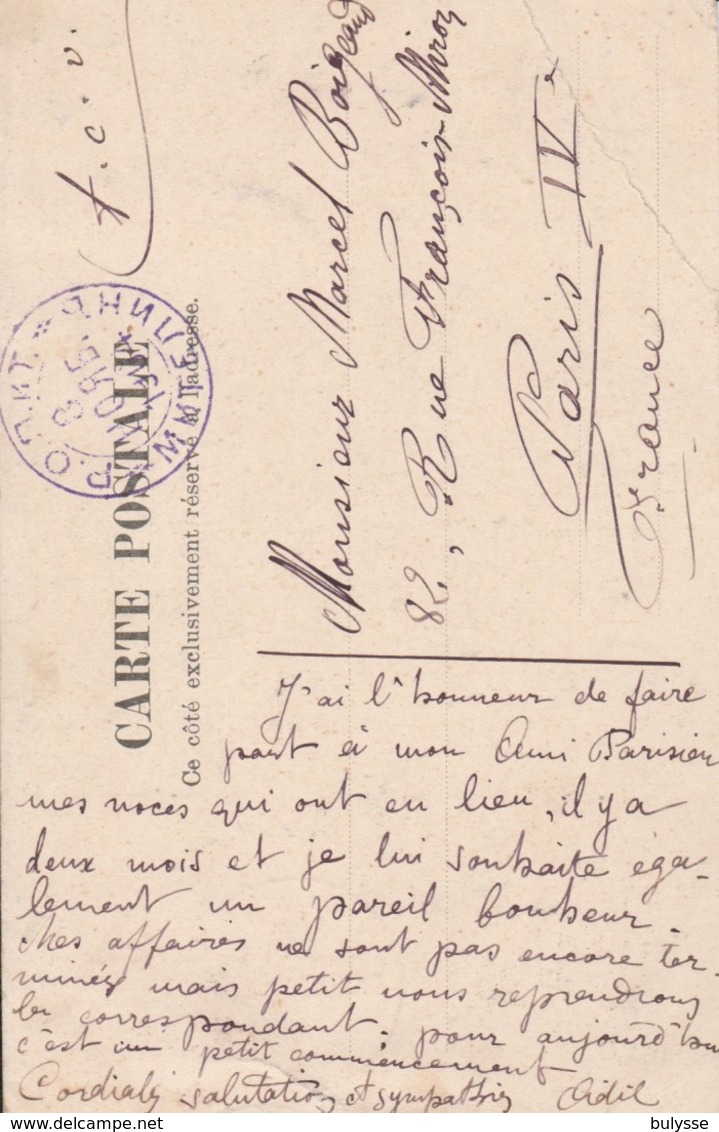 t.c.v.
CARTE POSTALE
Ce côté exclusivement réservé à l'adresse.
Р.О.П.И.Т.
8 95
Monsieur Marcel
82, Rue François Miron
Paris IVe
France
J'ai l'honneur de faire
part à mon Ami Parisien
mes noces qui ont eu lieu, il y a
deux mois et je lui souhaite éga-
lement un pareil bonheur.
Mes affaires ne sont pas encore ter-
minées mais petit nous reprendrons
la correspondant. pour aujourd'hui
c'est un petit commencement
Cordiales salutations et sympathies Adil
bulysse